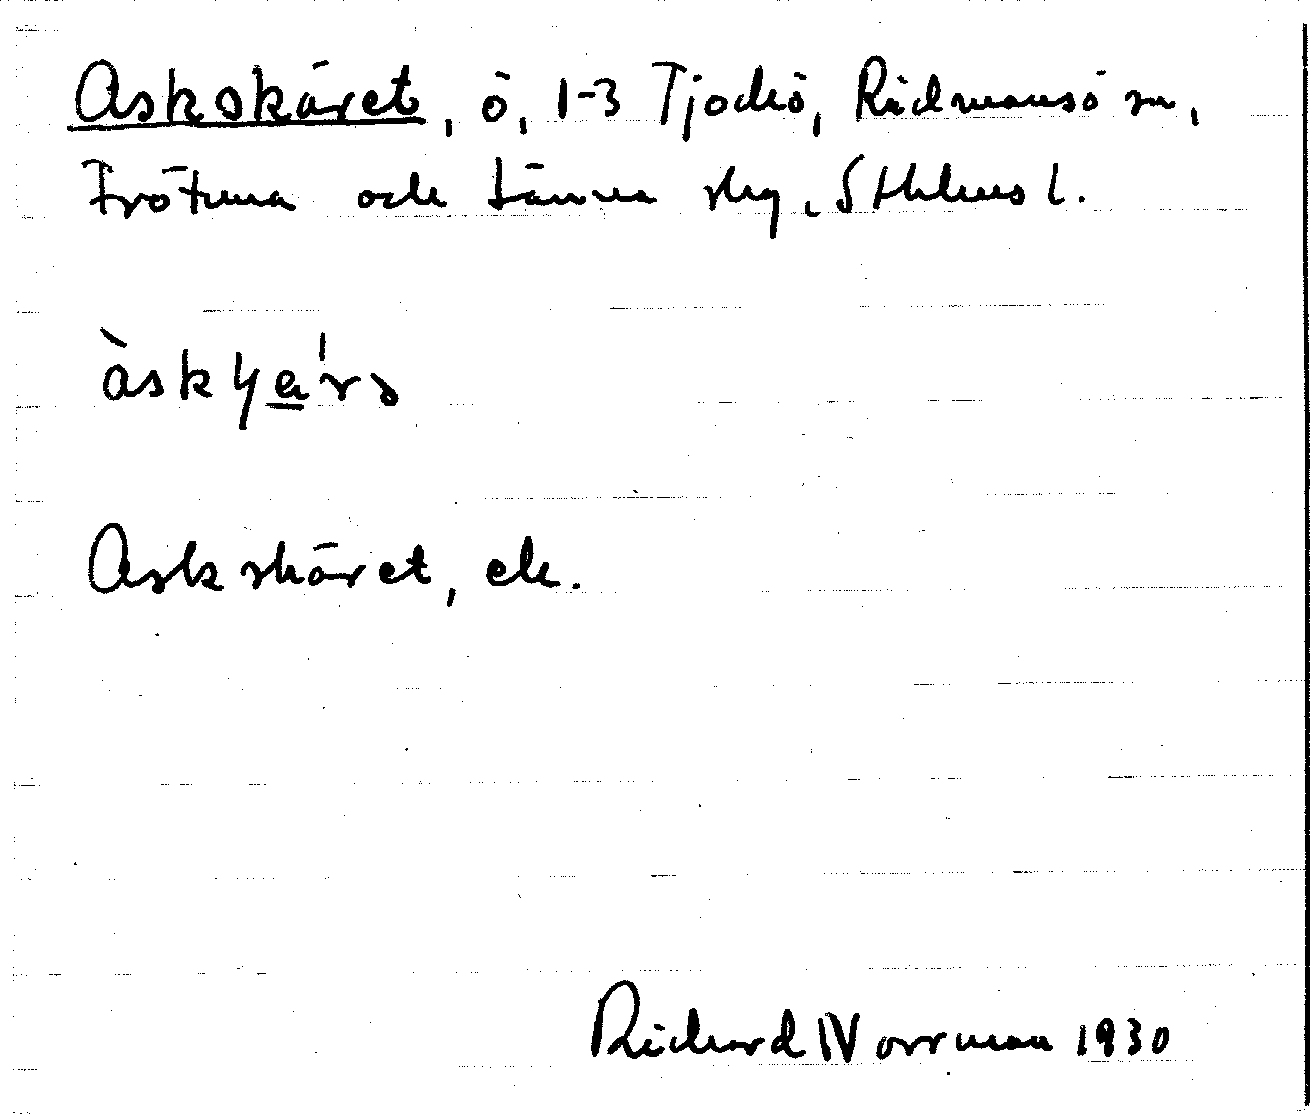 Askskäret, ö, 1-3 Tjockö, Rådmansö sn,
Frötuna och Länna skg, Sthlms l.
àskɥa̲'rə
Askskäret, ek.
Richard Norrman 1930